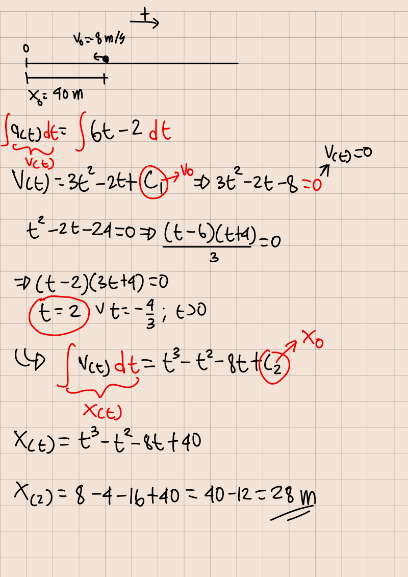 +
0 V₀=-8 m/s
X₀=40 m
∫a(t)dt = ∫6t-2 dt
V(t)
V(t)=0
V(t)=3t²-2t+C₁ → V₀ ⇒ 3t²-2t-8=0
t²-2t-24=0 ⇒ (t-6)(t+4)/3=0
⇒ (t-2)(3t+4)=0
t=2 ∨ t=-4/3 ; t>0
X₀
↪ ∫V(t)dt = t³-t²-8t+C₂
X(t)
X(t)=t³-t²-8t+40
X(2)=8-4-16+40=40-12=28 m